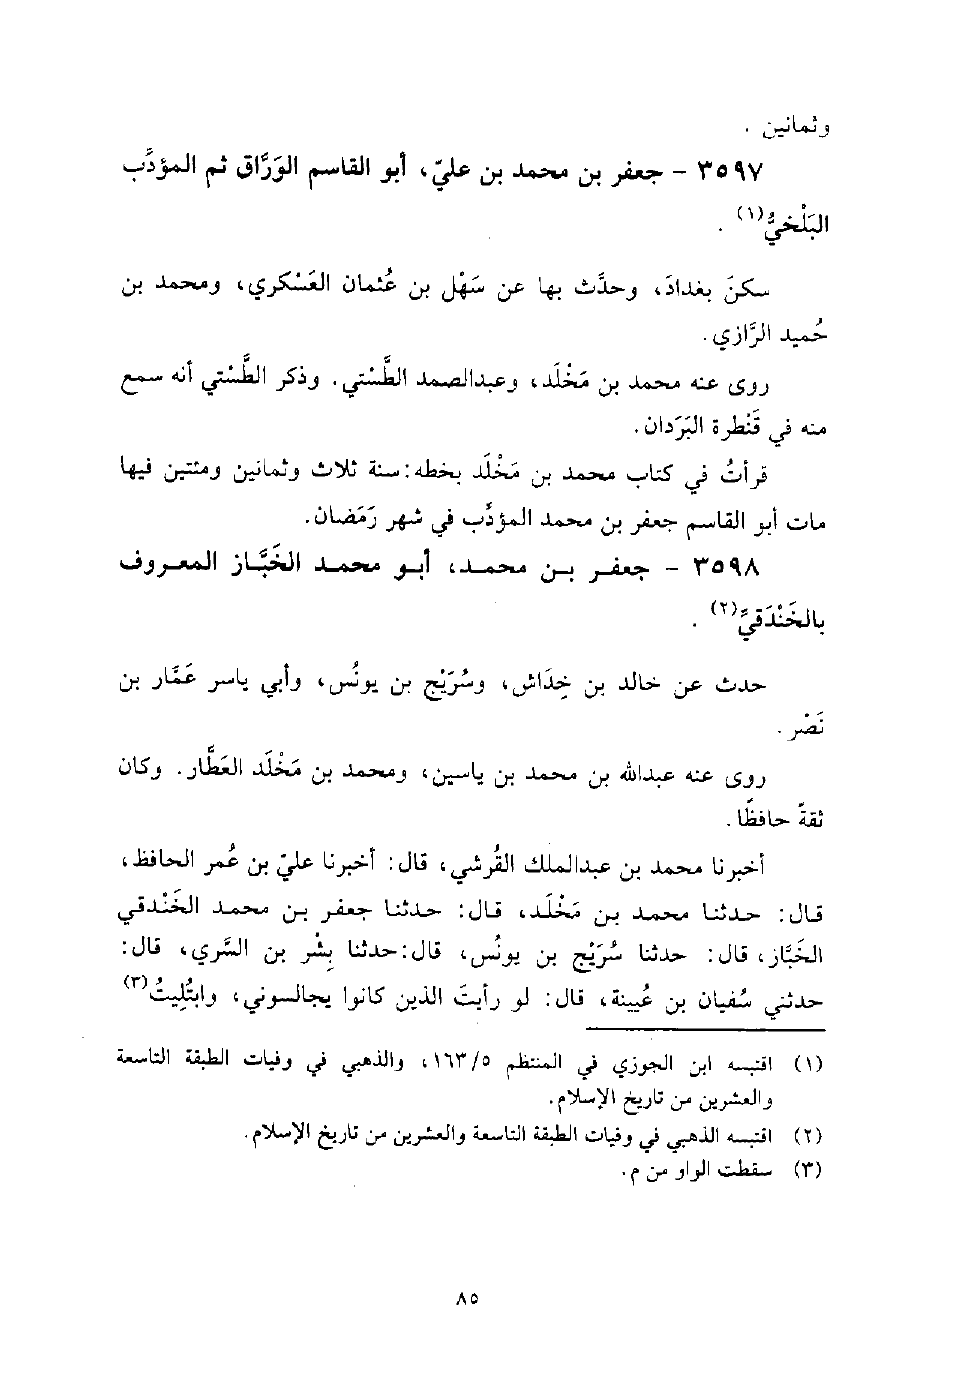 وثمانين .
٣٥٩٧ - جعفر بن محمد بن عليّ، أبو القاسم الوَرَّاق ثم المؤدِّب
البَلْخيُّ(١) .
سكنَ بغدادَ، وحدَّث بها عن سَهْل بن عُثمان العَسْكري، ومحمد بن
حُميد الرَّازي.
روى عنه محمد بن مَخْلَد، وعبدالصمد الطَّسْتي. وذكر الطَّسْتي أنه سمع
منه في قَنْطرة البَرَدان.
قرأتُ في كتاب محمد بن مَخْلَد بخطه: سنة ثلاث وثمانين ومئتين فيها
مات أبو القاسم جعفر بن محمد المؤدِّب في شهر رَمَضان.
٣٥٩٨ - جعفر بن محمد، أبو محمد الخَبَّاز المعروف
بالخَنْدَقيَّ(٢) .
حدث عن خالد بن خِدَاش، وسُرَيْج بن يونُس، وأبي ياسر عَمَّار بن
نَصْر .
روى عنه عبدالله بن محمد بن ياسين، ومحمد بن مَخْلَد العَطَّار. وكان
ثقةً حافظًا.
أخبرنا محمد بن عبدالملك القُرشي، قال: أخبرنا عليّ بن عُمر الحافظ،
قال: حدثنا محمد بن مَخْلَد، قال: حدثنا جعفر بن محمد الخَنْدقي
الخَبَّاز، قال: حدثنا سُرَيْج بن يونُس، قال: حدثنا بِشْر بن السَّري، قال:
حدثني سُفيان بن عُيينة، قال: لو رأيتَ الذين كانوا يجالسوني، وابتُليتُ(٣)
(١) اقتبسه ابن الجوزي في المنتظم ٥/ ١٦٣، والذهبي في وفيات الطبقة التاسعة
والعشرين من تاريخ الإسلام.
(٢) اقتبسه الذهبي في وفيات الطبقة التاسعة والعشرين من تاريخ الإسلام.
(٣) سقطت الواو من م.
٨٥